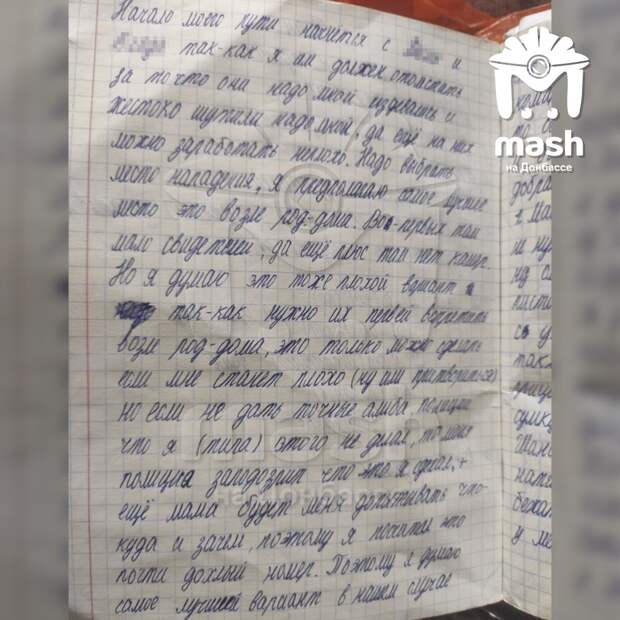 Начало моего пути начнётся с и
так-как я им должен отомстить
за то что они надо мной издевались и
жестоко шутили надо мной, да ещё на них
можно заработать неплохо. Надо выбрать
место нападения, я предполагаю самое лучшее
место это возле род-дома. Во-первых там
мало свидетелей, да ещё плюс там нет камер.
Но я думаю это тоже плохой вариант
так-как нужно их первей встретить
возле род-дома, это только можно сделать
если мне станет плохо (ну или притвориться)
но если не дать точные алиба полиции
что я (типа) этого не делал, то меня
полиция заподозрит что это я сделал, +
ещё мама будет меня допытывать что
куда и зачем, поэтому я посчитал это
почти дохлый номер. Поэтому я думаю
самое лучший вариант в нашем случае
mash
на Донбассе
добра